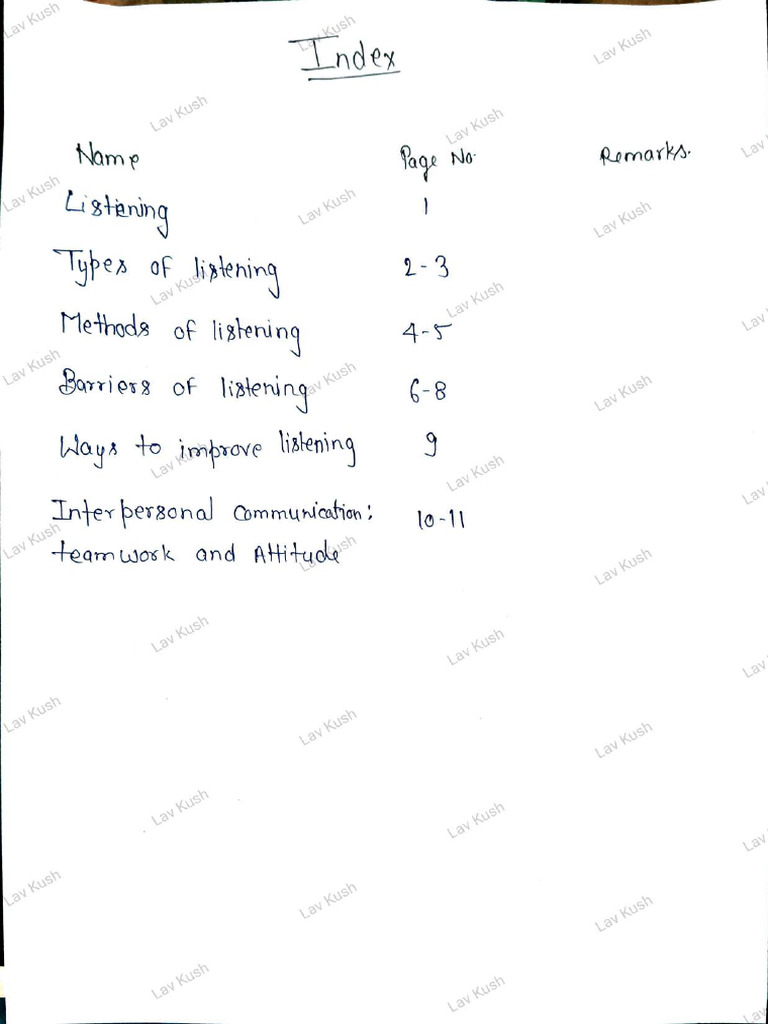 Index
Name Page No. Remarks.
Listening 1
Types of listening 2-3
Methods of listening 4-5
Barriers of listening 6-8
Ways to improve listening 9
Interpersonal communication: 10-11
teamwork and Attitude
Lav Kush